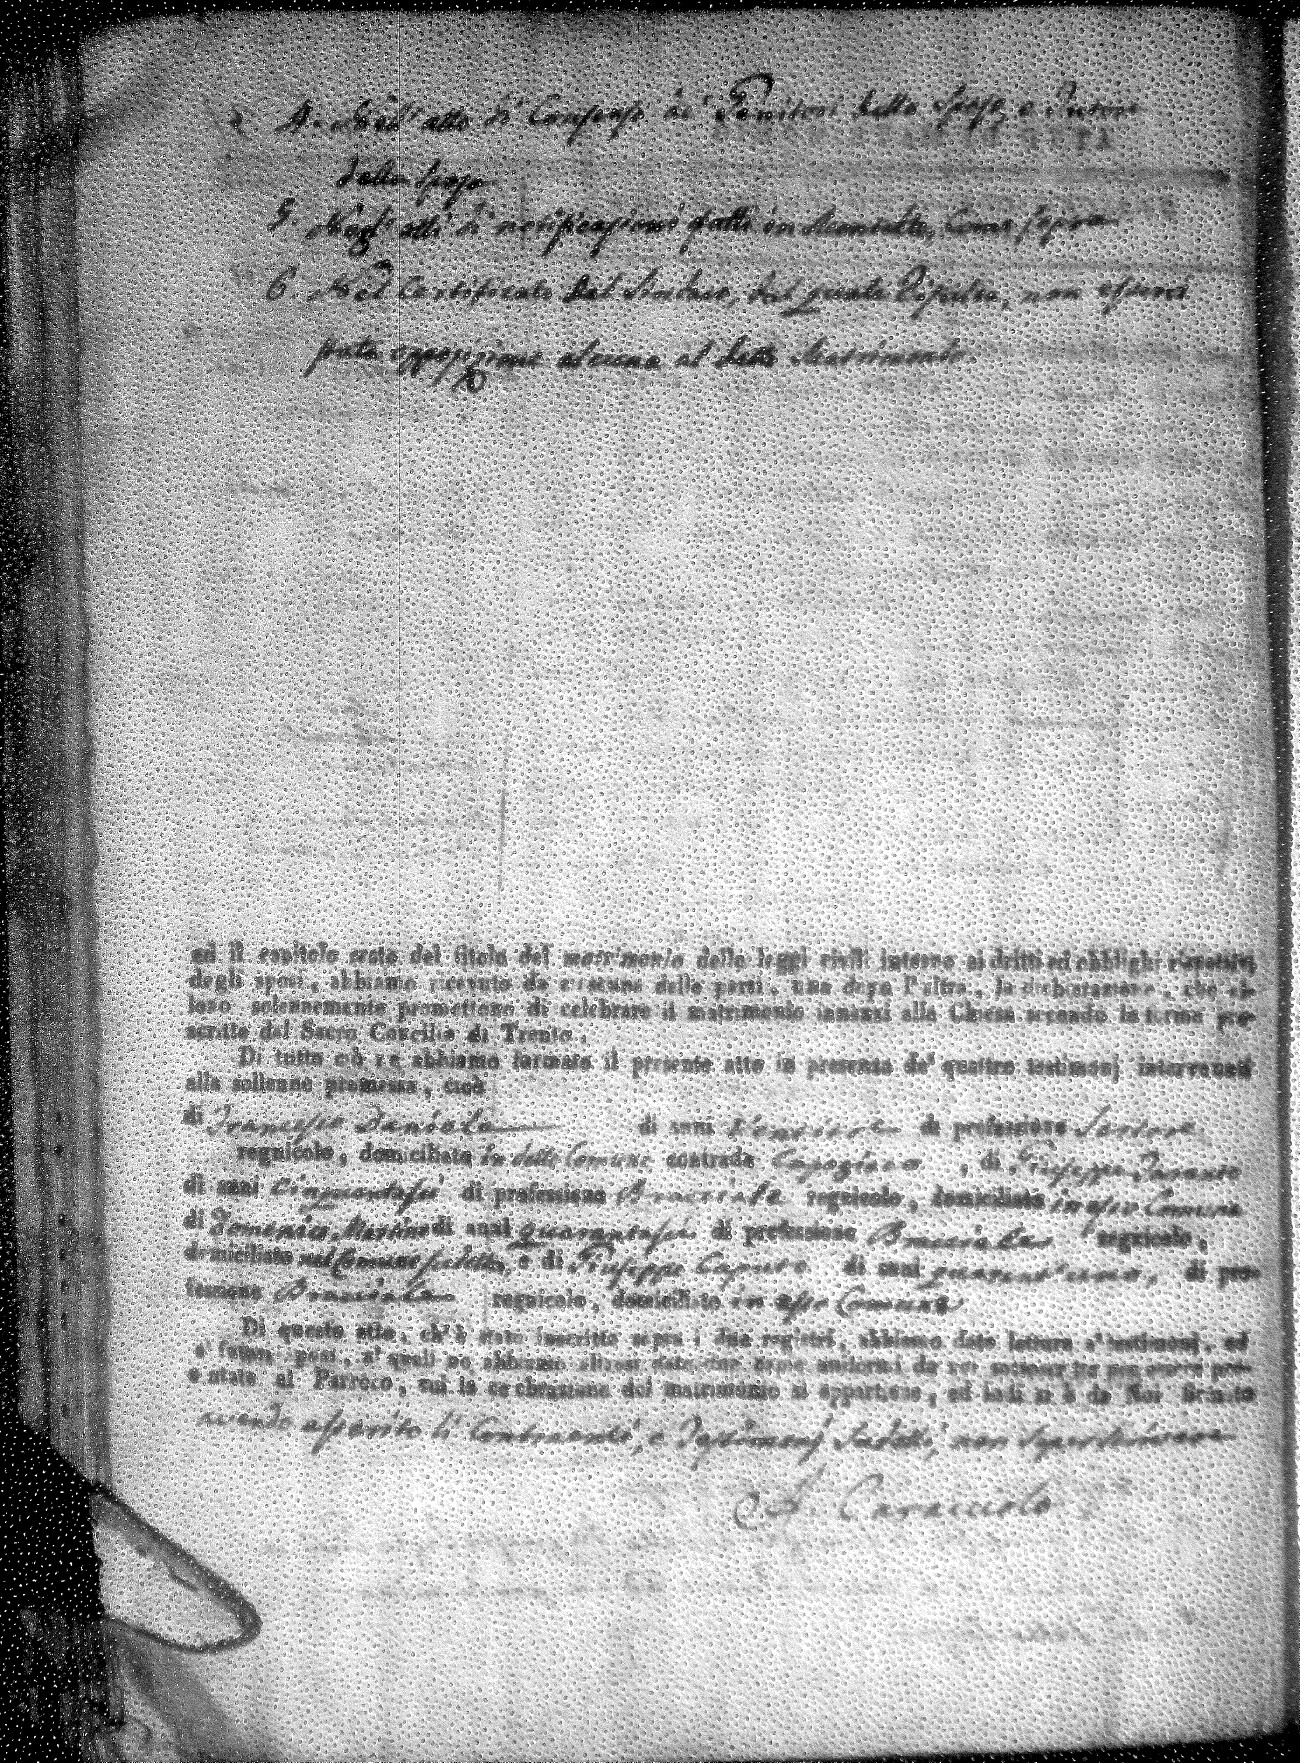 4. Nell'atto di Consenso de' Genitori dello sposo, e
dello sposo
5. Negl'atti di notificazioni fatti in come sopra
6. Nel Certificato del Sindaco, dal quale non essersi
fatta opposizione alcuna al detto Matrimonio
ed il capitolo sesto del titolo del matrimonio delle leggi civili intorno ai dritti ed obblighi rispettivi
degli sposi, abbiamo ricevuto da ciascuna delle parti, una dopo l'altra, la dichiarazione, che el-
leno solennemente promettono di celebrare il matrimonio innanzi alla Chiesa secondo la forma pre-
scritta dal Sacro Concilio di Trento.
Di tutto ciò ne abbiamo formato il presente atto in presenza de' quattro testimonj intervenuti
alla sollenne promessa, cioè
di Francesco Daniele di anni di professione Sartore
regnicolo, domiciliato in detto Comune contrada , di Giuseppe Taranto
di anni cinquantasei di professione Bracciale regnicolo, domiciliato in esso Comune
di Domenico Martino di anni quarantasei di professione Bracciale regnicolo,
domiciliato nel Comune suddetto, e di Giuseppe Caputo di anni quarant'uno, di pro-
fessione Bracciale regnicolo, domiciliato in esso Comune
Di questo atto, ch'è stato inscritto sopra i due registri, abbiamo dato lettura a' testimonj, ed
a' futuri sposi, a' quali ne abbiamo altresì date due copie uniformi da noi sottoscritte per essere pre-
sentate al Parroco, cui la celebrazione del matrimonio si appartiene, ed indi si è da Noi firmato
avendo asserito li Contraenti, e Testimonj sudetti, non saper scrivere
Caracciolo